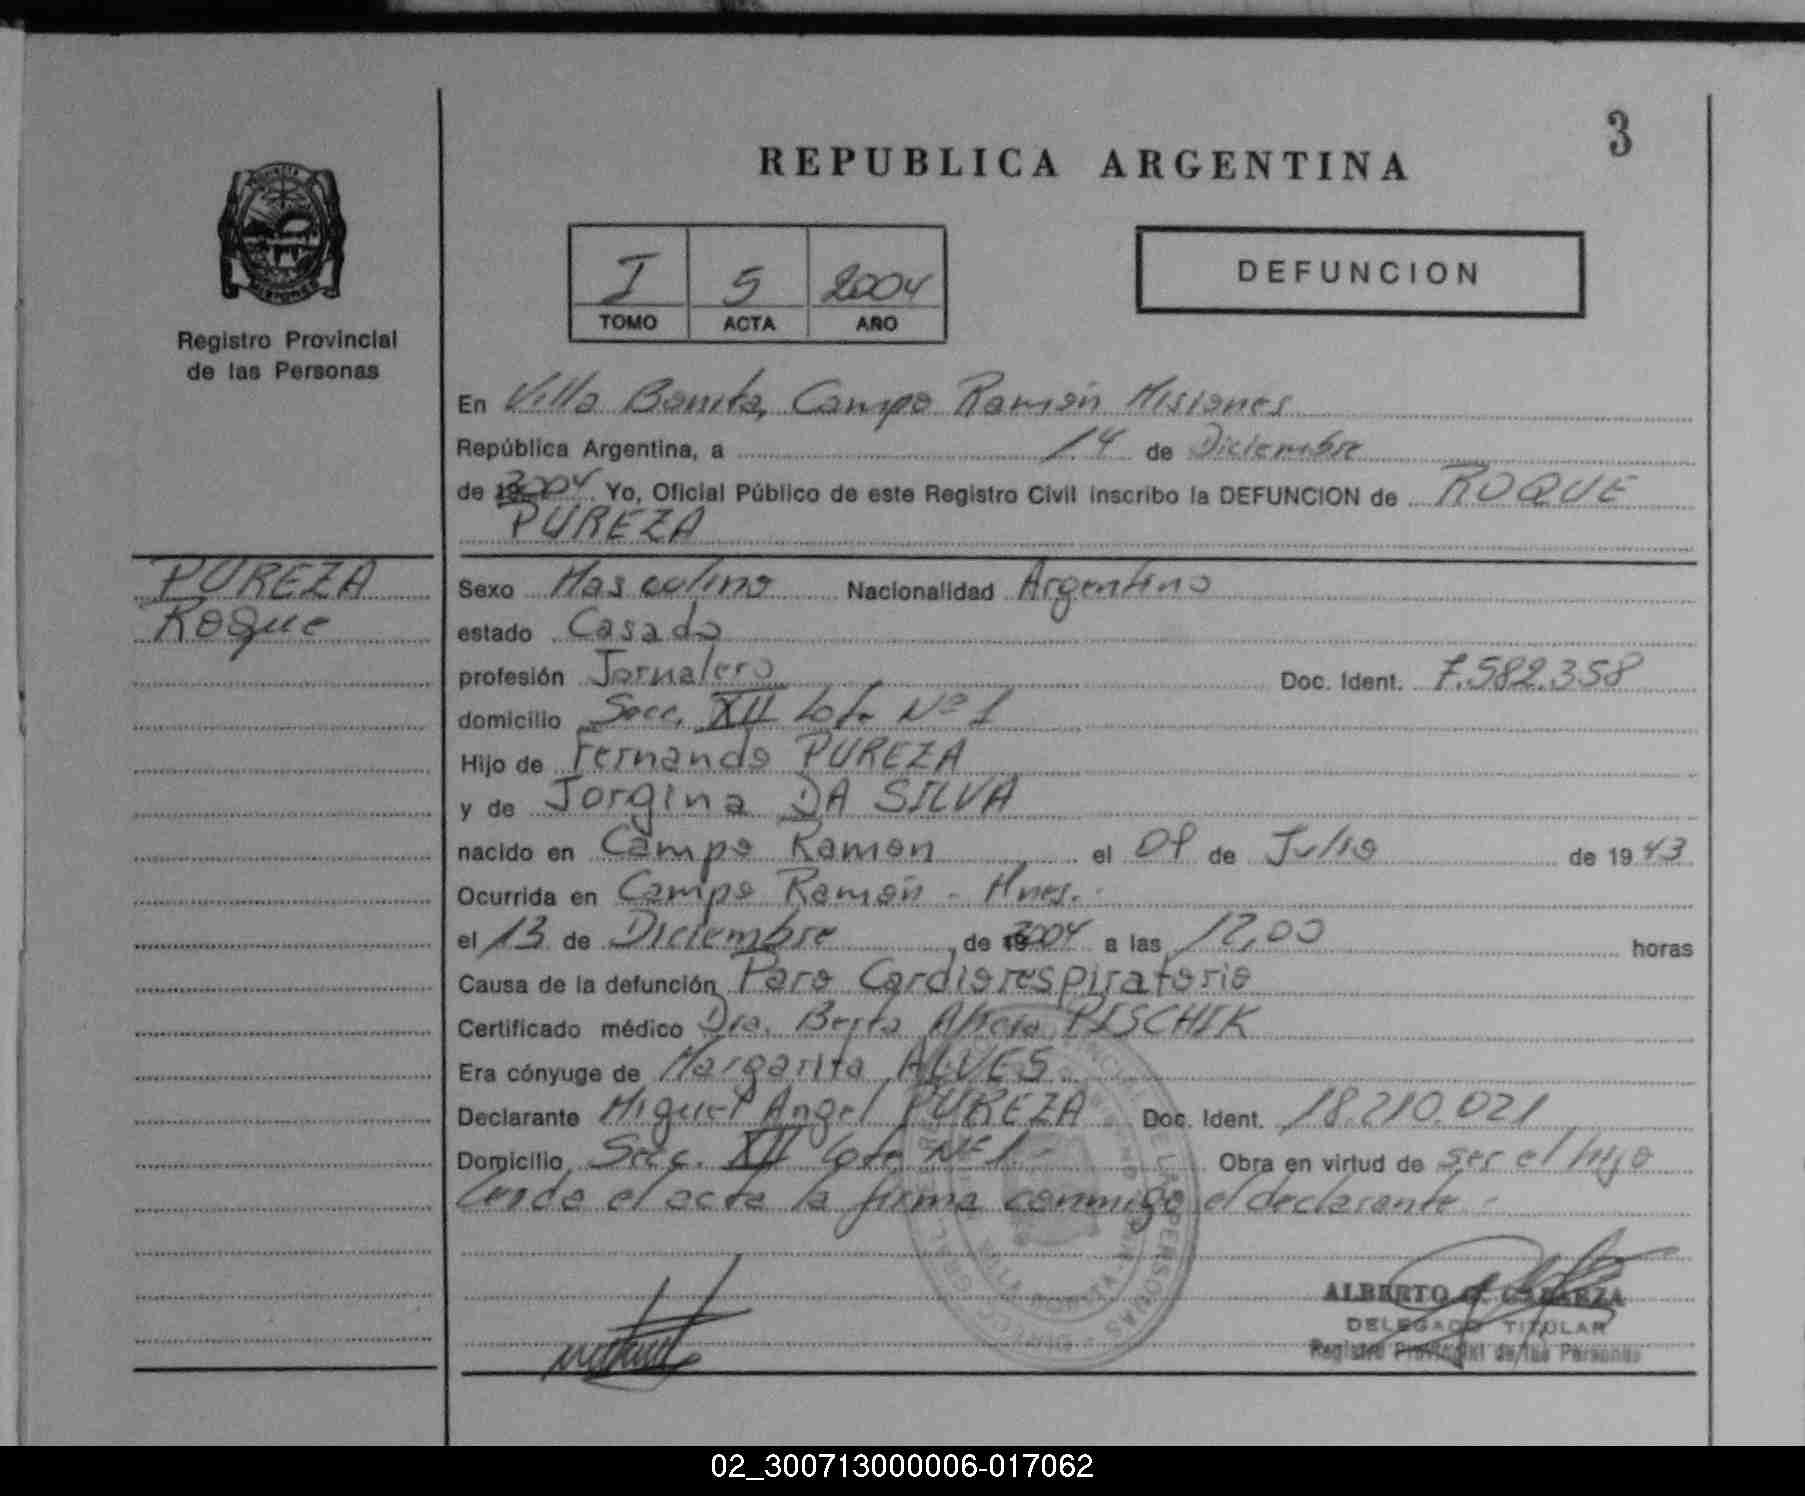 3
REPUBLICA ARGENTINA
I 5 2004
TOMO ACTA AÑO
DEFUNCION
Registro Provincial
de las Personas
En Villa Bonita, Campo Ramón Misiones
República Argentina, a 14 de Diciembre
de 2004 Yo, Oficial Público de este Registro Civil inscribo la DEFUNCION de ROQUE
PUREZA
PUREZA
Roque
Sexo Masculino Nacionalidad Argentino
estado Casado
profesión Jornalero Doc. Ident. 7.582.358
domicilio Secc. XII Lote Nº 1
Hijo de Fernando PUREZA
y de Jorgina DA SILVA
nacido en Campo Ramon el de Julio de 1943
Ocurrida en Campo Ramón - Mnes.-
el 13 de Diciembre de 2004 a las 12,00 horas
Causa de la defunción Paro Cardiorespiratorio
Certificado médico Dra. Berta Alicia PISCHIK
Era cónyuge de Margarita ALVES
Declarante Miguel Angel PUREZA Doc. Ident. 18.210.021
Domicilio Secc. XII Lote Nº 1 - Obra en virtud de ser el hijo
Leida el acta la firma conmigo el declarante.-
ALBERTO
DELEGADO TITULAR
Registro Provincial de las Personas
02_300713000006-017062